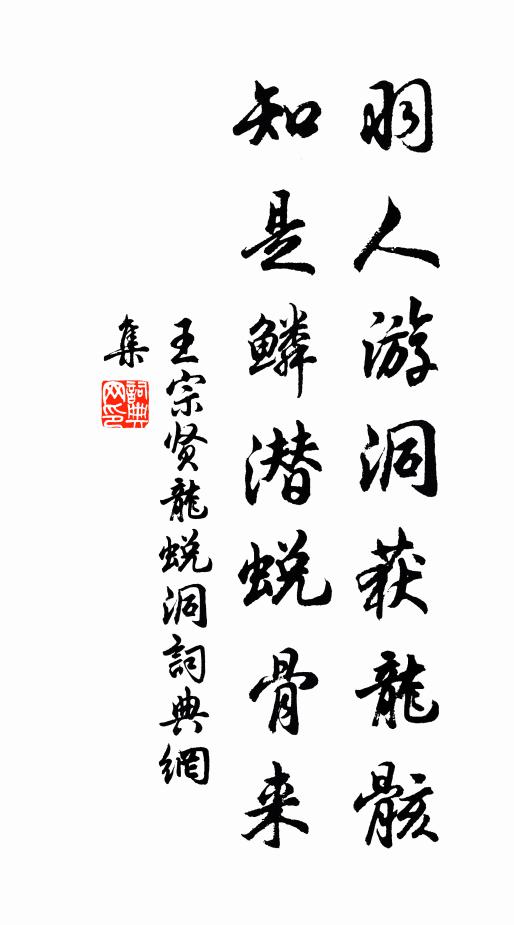 羽人游洞获龍骸
知是鳞潜蜕骨来
王宗贤龍蜕洞詞典網
集
詞典
网印